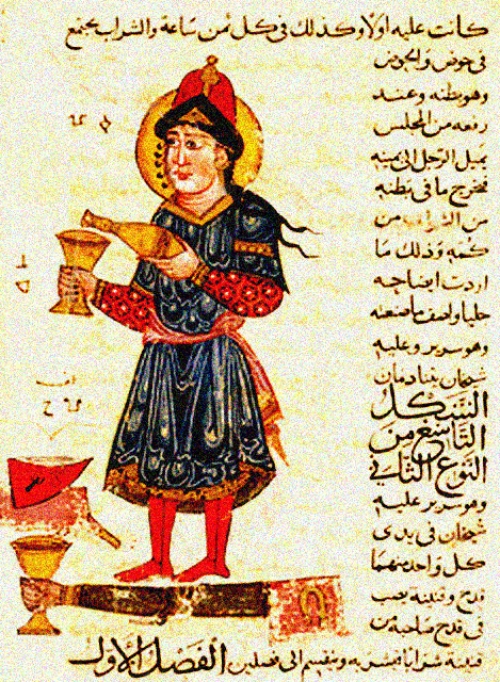 كانت عليه اولا وكذلك في كل من ساعة والشراب يجتمع
في حوض والحوض
وهو بطنه وعند
رفعه من المجلس
يميل الرجل الى يمينه
فيخرج ما في بطنه
من الشراب من
كمه وذلك ما
اردت ايضاحه
جليا واصف ما صنعته
وهو سرير وعليه
شيخان يتنادمان
الشكل
التاسع من
النوع الثاني
وهو سرير عليه
شيخان في يدي
كل واحد منهما
قدح وقنينة يصب
في قدح صاحبه من
قنينة شرابا يشربه وينقسم الى فصلين الفصل الاول